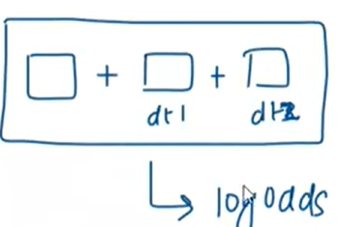 + +
dt1 dt2
log odds